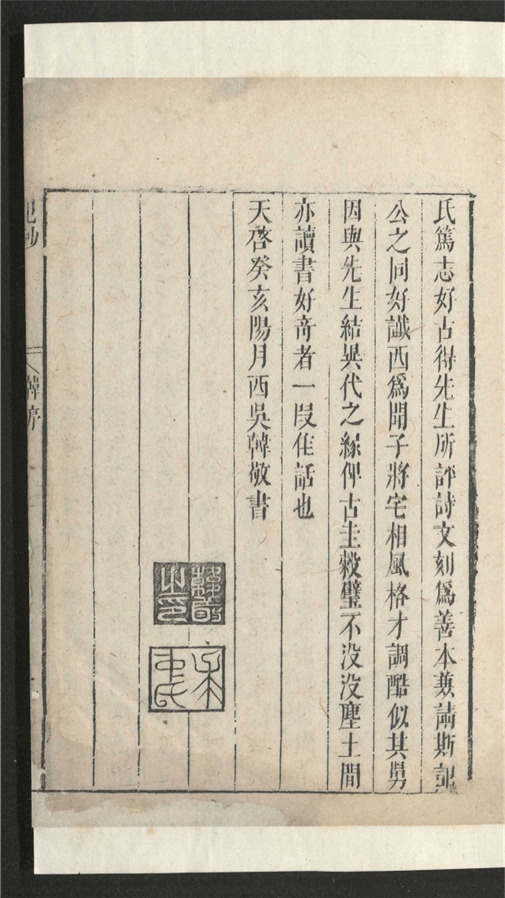 氏篤志好古得先生所評詩文刻爲善本兼請斯記
公之同好讖西爲聞子將宅相風格才調酷似其舅
因與先生結異代之緣俾古圭穀璧不没没塵土間
亦讀書好奇者一段佳話也
天啓癸亥陽月西吳韓敬書
韓敬之印
韓序